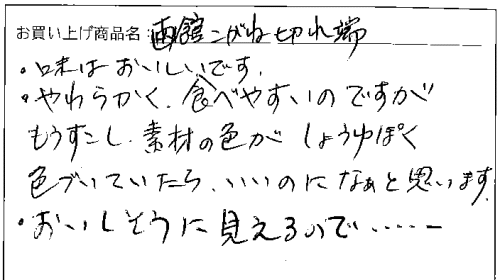 お買い上げ商品名：函館こがね切れ端
・味はおいしいです。
・やわらかく、食べやすいのですが
もうすこし、素材の色が しょうゆぽく
色づいていたら、いいのになぁと思います。
・おいしそうに見えるので……